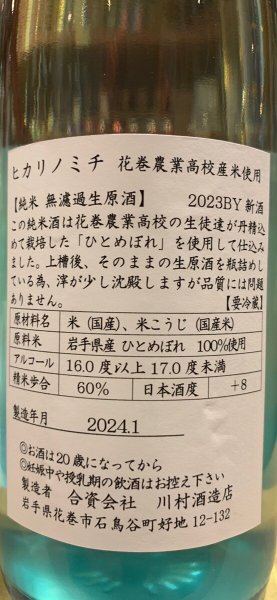 ヒカリノミチ 花巻農業高校産米使用
【純米 無濾過生原酒】 2023BY 新酒
この純米酒は花巻農業高校の生徒達が丹精込
めて栽培した「ひとめぼれ」を使用して仕込み
ました。上槽後、そのままの生原酒を瓶詰めし
ている為、滓が少し沈殿しますが品質には問題
ありません。 【要冷蔵】
原材料名 米(国産)、米こうじ(国産米)
原料米 岩手県産 ひとめぼれ 100%使用
アルコール 16.0度以上17.0度未満
精米歩合 60% 日本酒度 +8
製造年月 2024.1
◎お酒は20歳になってから
◎妊娠中や授乳期の飲酒はお控え下さい
製造者 合資会社 川村酒造店
岩手県花巻市石鳥谷町好地 12-132